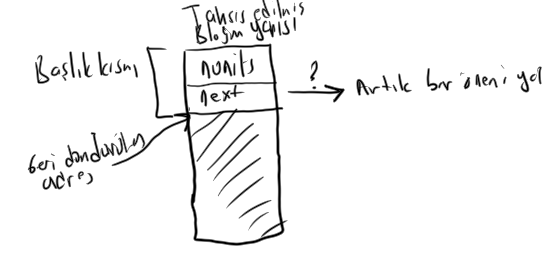 Tahsis edilmiş
Bloğun yapısı
Başlık kısmı
nunits
next
?
Artık bir önemi yok
Geri döndürülen
adres